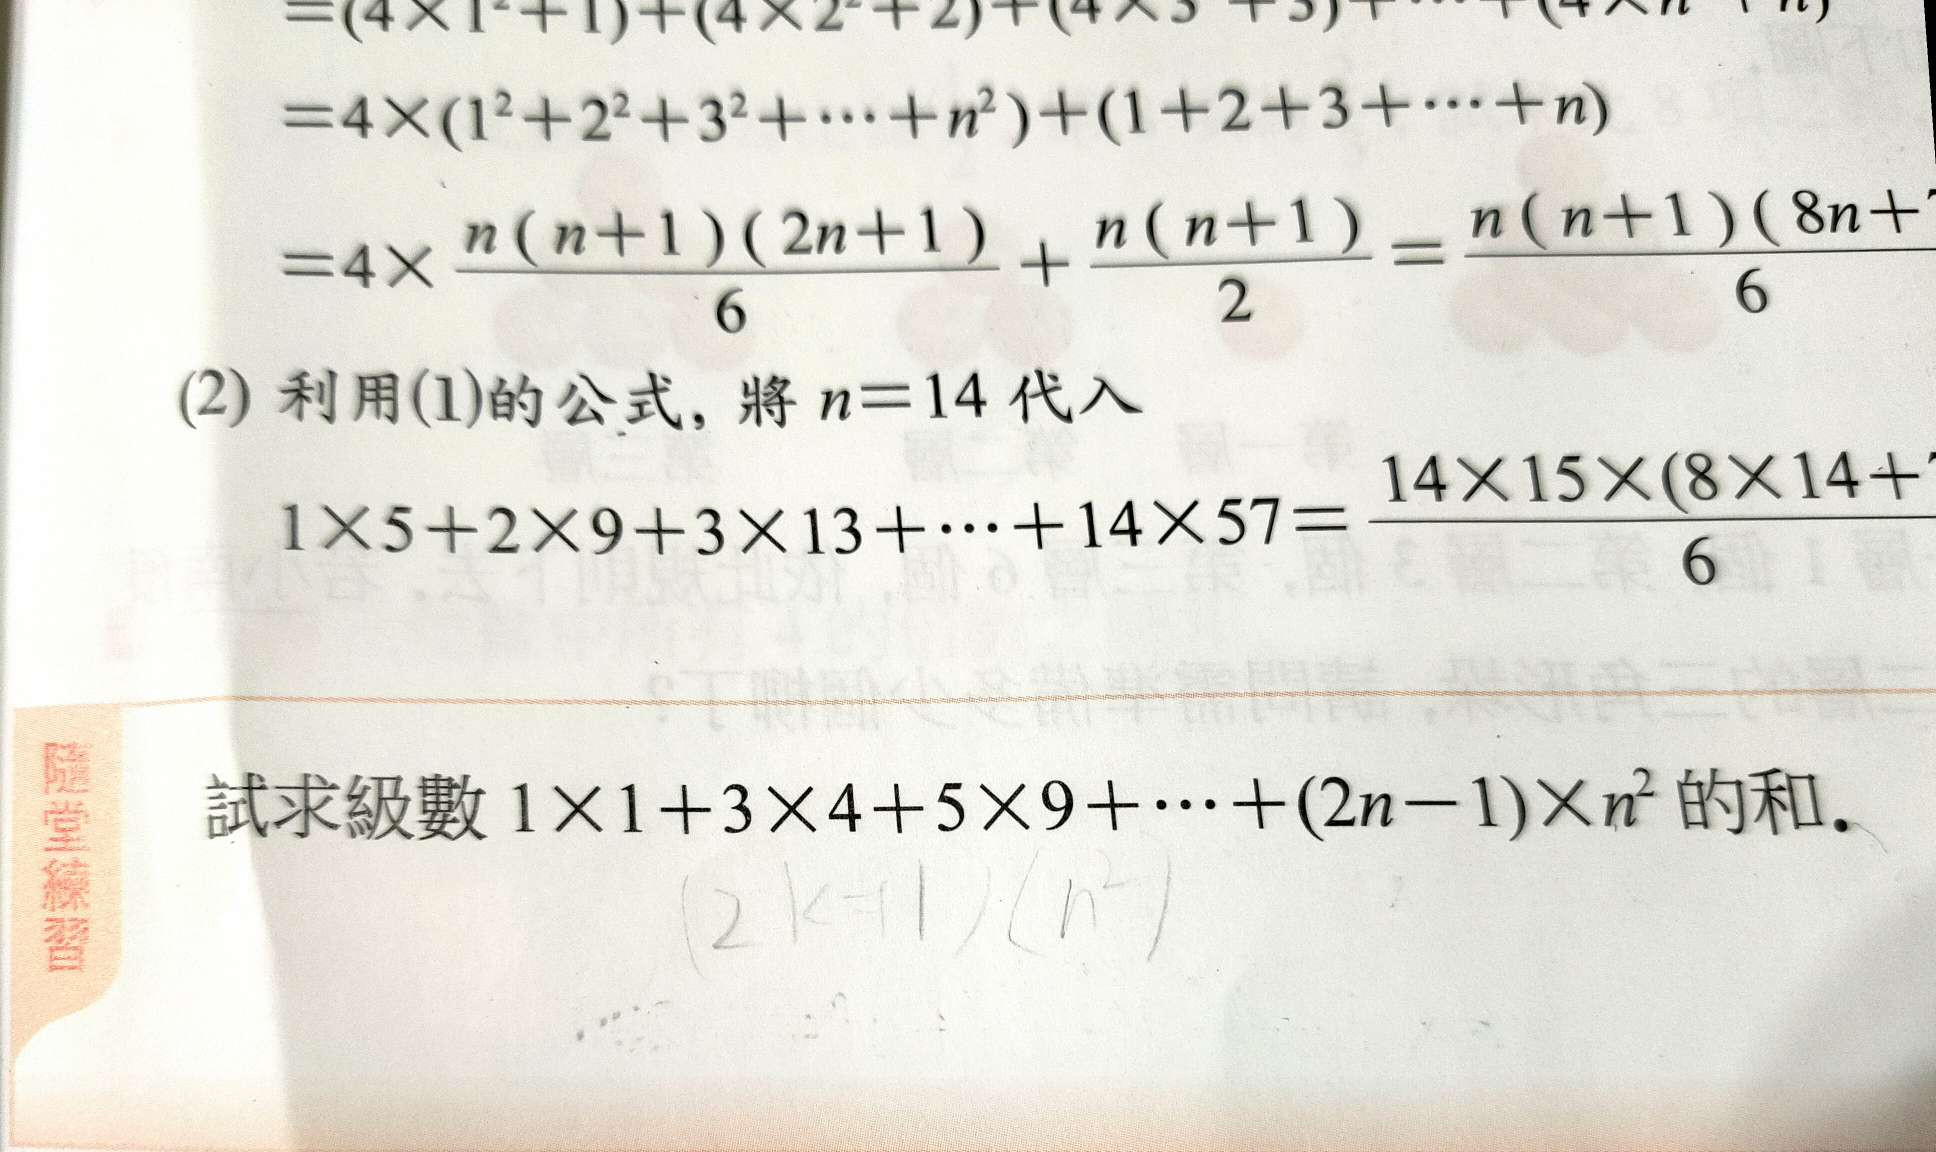 =(4×1²+1)+(4×2²+2)+(4×3²+3)+⋯+(4×n²+n)
=4×(1²+2²+3²+⋯+n²)+(1+2+3+⋯+n)
=4× n(n+1)(2n+1)/6 + n(n+1)/2 = n(n+1)(8n+7/6
(2) 利用(1)的公式, 將 n=14 代入
1×5+2×9+3×13+⋯+14×57= 14×15×(8×14+7/6
隨堂練習
試求級數 1×1+3×4+5×9+⋯+(2n−1)×n² 的和.
(2k-1)(n²)